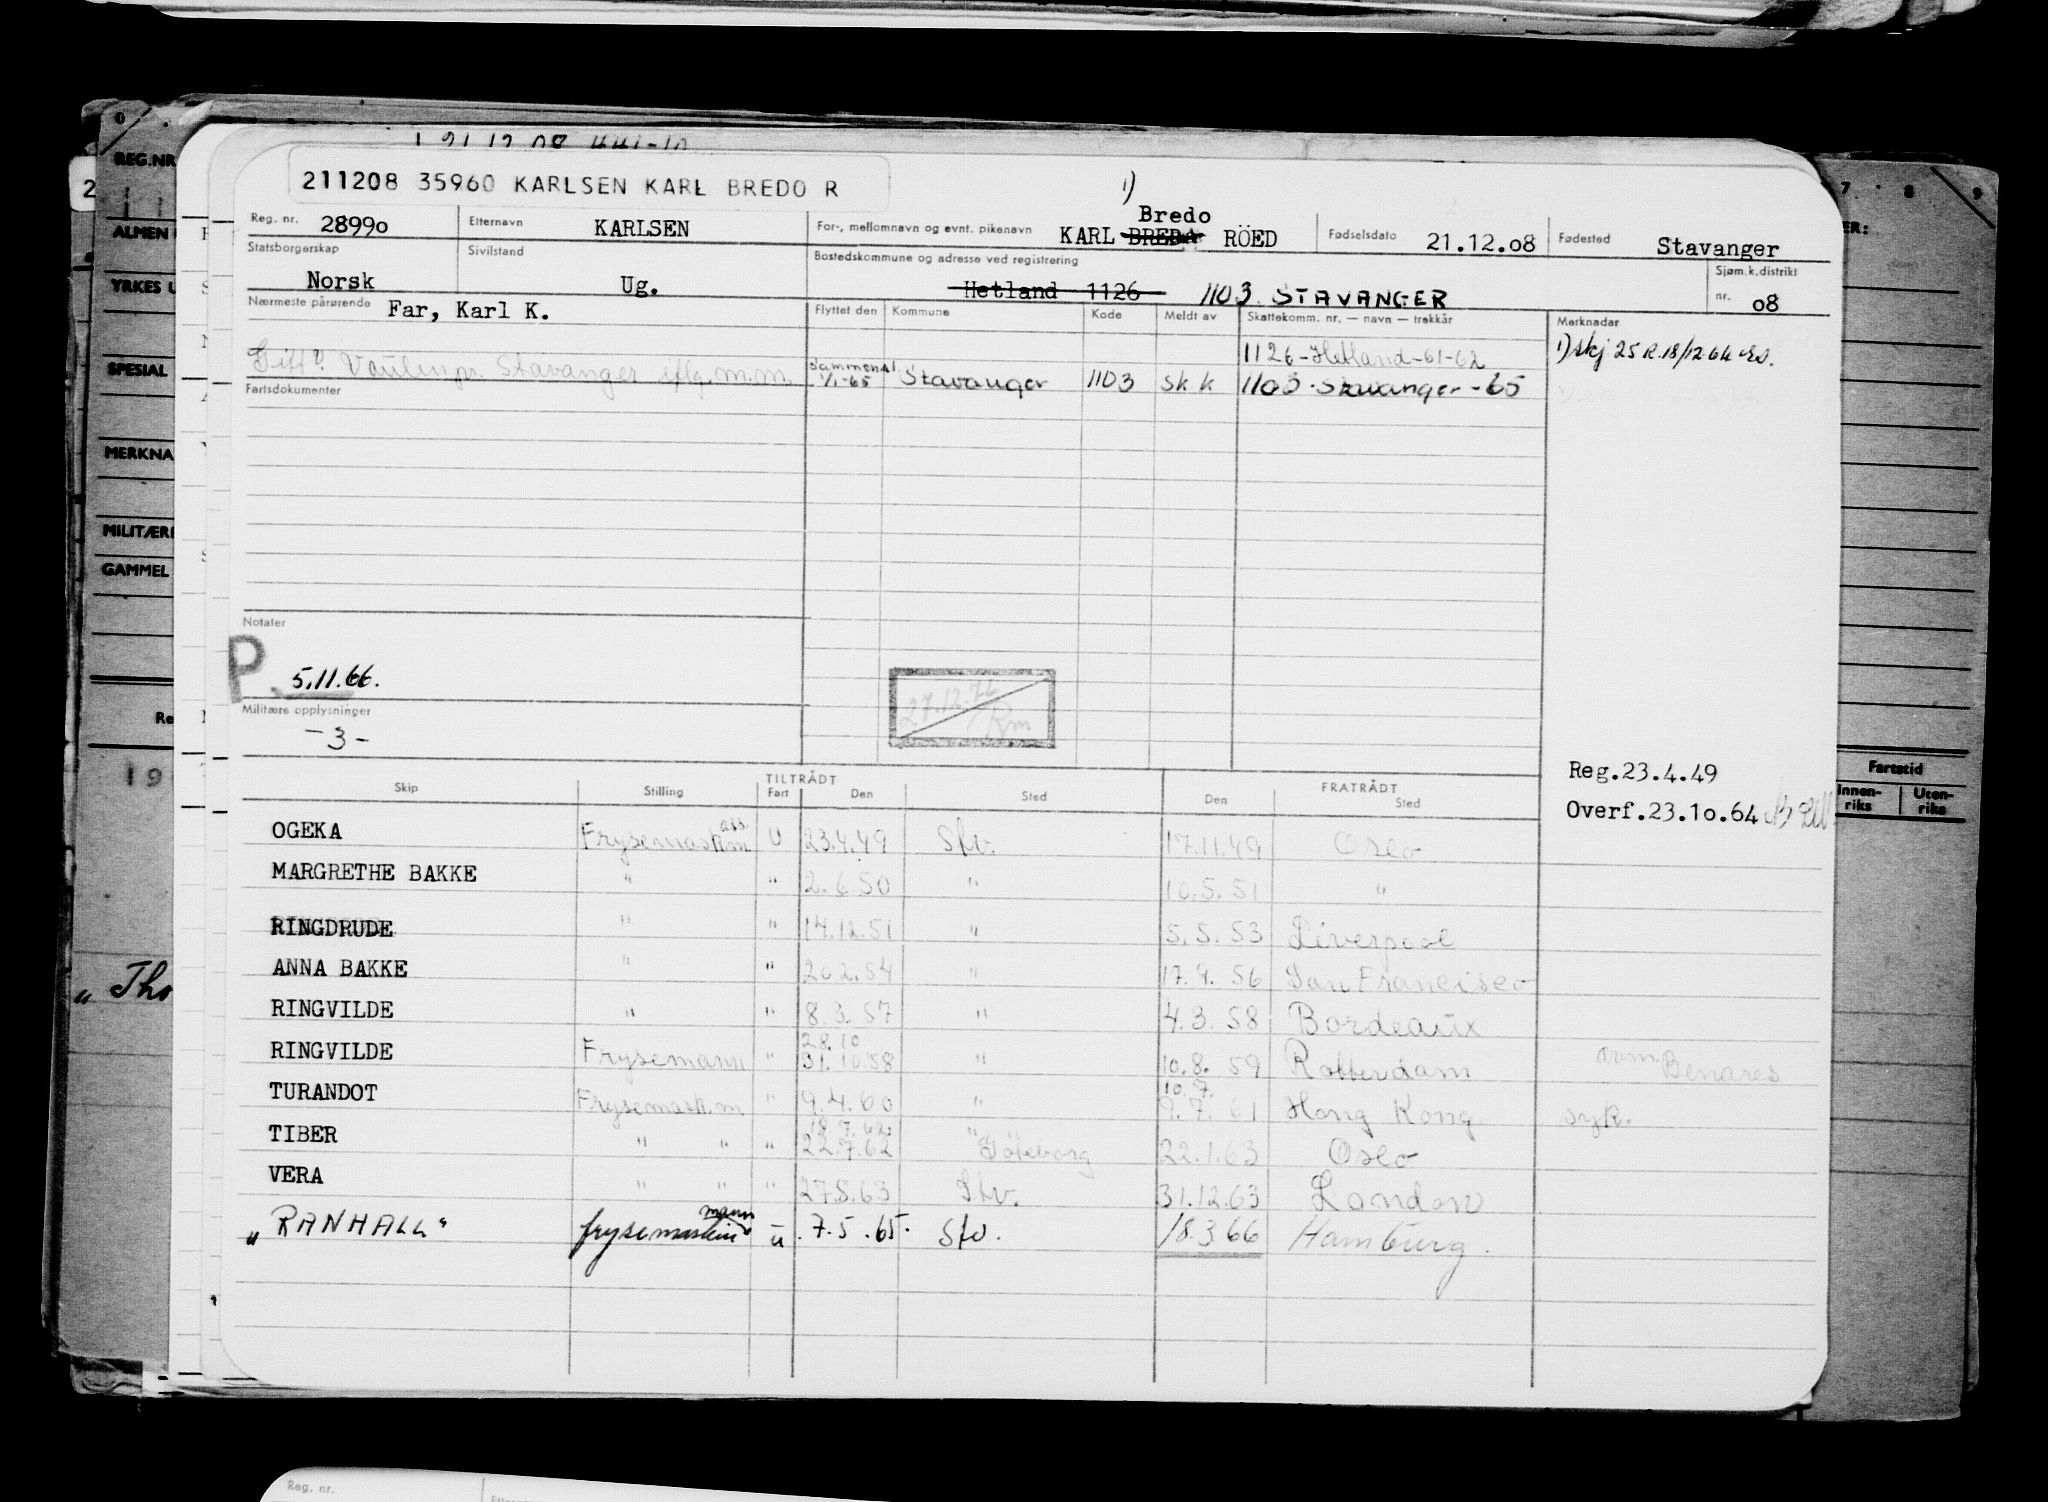 211208 35960 KARLSEN KARL BREDO R
1)
Reg. nr. 2899o Etternavn KARLSEN For-, mellomnavn og evnt. pikenavn KARL BREDA Bredo RÖED Fødselsdato 21.12.o8 Fødested Stavanger
Statsborgerskap Norsk Sivilstand Ug. Bostedskommune og adresse ved registrering Hetland 1126 1103 STAVANGER Sjøm.k.distrikt nr. o8
Nærmeste pårørende Far, Karl K. Flyttet den Kommune Kode Meldt av Skattekomm. nr. — navn — trekkår Merknader
1126-Hetland-61-62 1) skj 25 R. 18/12.64
Stavanger
1/1-65 Stavanger 1103 sk k 1103 Stavanger-65
Fartsdokumenter
Notater
P 5.11.66.
27.12.72
Rm
Militære opplysninger
-3-
Reg.23.4.49
Overf.23.1o.64
TILTRÅDT FRATRÅDT
Skip Stilling Fart Den Sted Den Sted
OGEKA Frysemask.m ass. U 23.4.49 Stv. 17.11.49 Oslo
MARGRETHE BAKKE " " 2.6.50 " 10.5.51 "
RINGDRUDE " " 14.12.51 " 5.5.53 Liverpool
ANNA BAKKE " " 20.2.54 " 17.9.56 San Francisco
RINGVILDE " " 8.3.57 " 4.3.58 Bordeaux
28.10
RINGVILDE Frysemann " 31.10.58 " 10.8.59 Rotterdam Benares
10.7.
TURANDOT Frysemask.m " 9.4.60 " 9.7.61 Hong Kong syk.
18.7.62 "
TIBER " " " 22.7.62 Göteborg 22.1.63 Oslo
VERA " " " 27.5.63 Stv. 31.12.63 London
"RANHALL" frysemaskin mann u. 7.5.65. Stv. 18.3 66 Hamburg.
REG.NR
ALMEN
YRKES U
SPESIAL
MERKNA
MILITÆRE
GAMMEL
Re
19
" Tho
7 8 9
ER:
Fartstid
Innen-riks Uten-riks
Reg. nr.